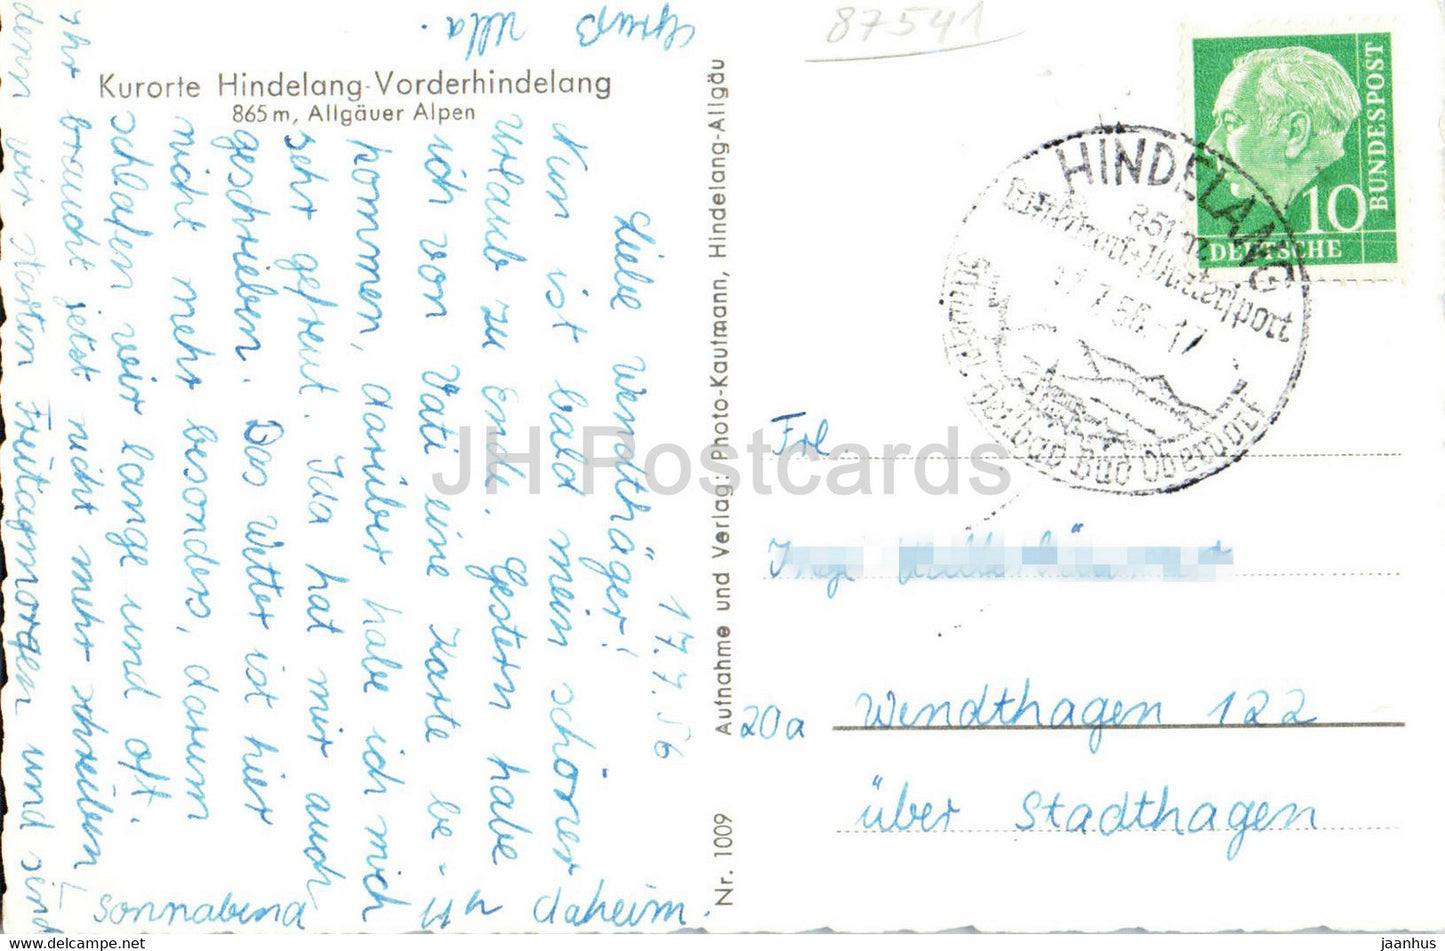 87541
Kurorte Hindelang-Vorderhindelang
865 m, Allgäuer Alpen
17.7.56
Liebe Wendthäger!
Nun ist bald mein schöner
Urlaub zu Ende. Gestern habe
ich von Vati eine Karte be-
kommen, darüber habe ich mich
sehr gefreut. Ida hat mir auch
geschrieben. Das Wetter ist hier
nicht mehr besonders, darum
schlafen wir lange und oft.
Ihr braucht jetzt nicht mehr schreiben
denn wir starten Freitagmorgen und sind
sonnabend 11h daheim.
Gruß
Ulla.
Nr. 1009 Aufnahme und Verlag: Photo-Kaufmann, Hindelang-Allgäu
HINDELANG
851 m
Luftkurort + Wintersport
17.7.56-17
Bad Oberdorf
10
DEUTSCHE
BUNDESPOST
Frl.
Inge
20a Wendthagen 122
über Stadthagen
JH Postcards
hippostcard.com/store/jaanhus
jaanhus